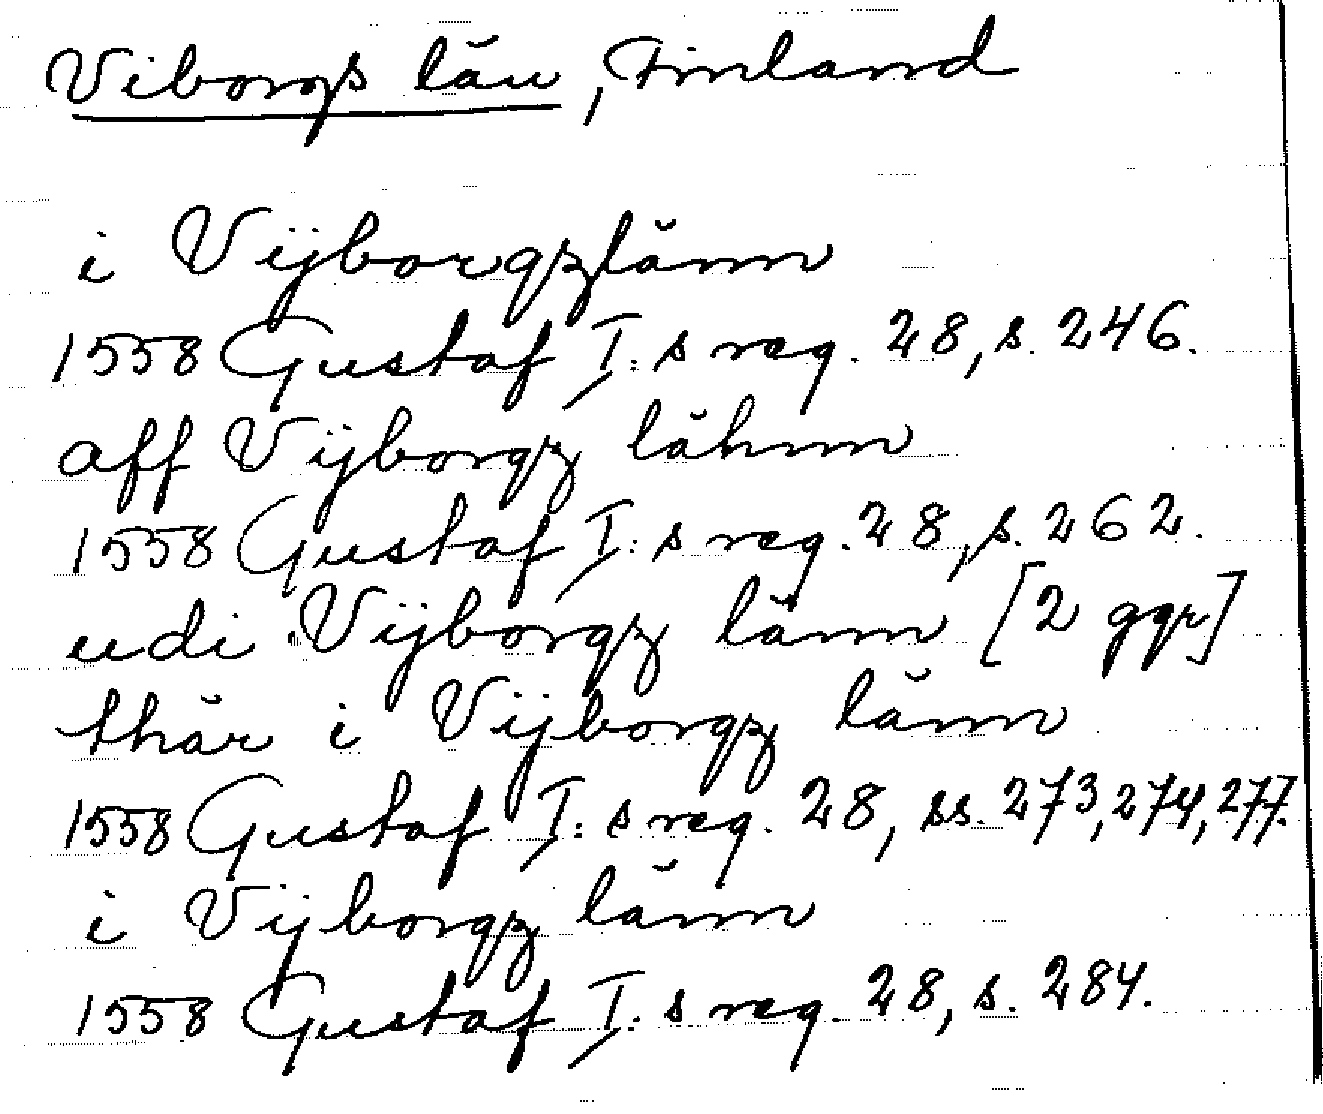 Viborgs län, Finland
i Vijborgzlänn
1558 Gustaf I:s reg. 28, s. 246.
aff Vijborgz lähnn
1558 Gustaf I:s reg. 28, s. 262.
udi Vijborgz länn [2 ggr]
thär i Vijborgz länn
1558 Gustaf I:s reg. 28, ss. 273, 274, 277.
i Vijborgz länn
1558 Gustaf I:s reg. 28, s. 284.